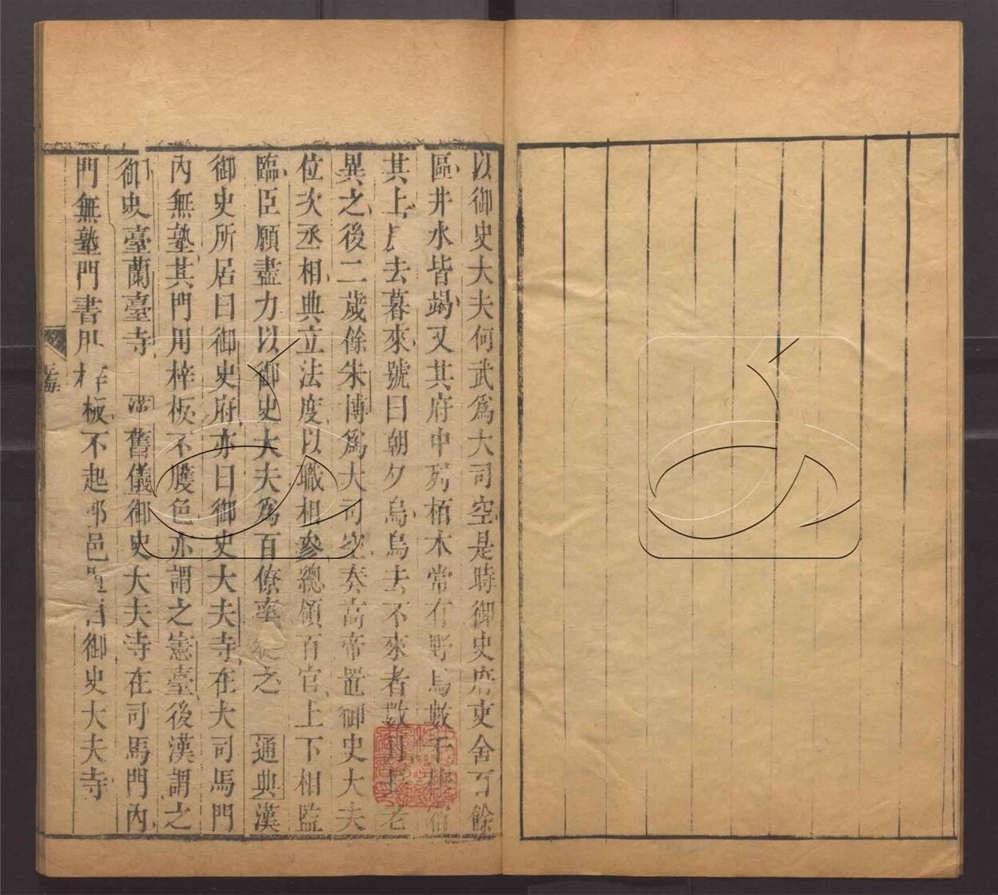 以御史大夫何武爲大司空是時御史府吏舍百餘
區井水皆竭又其府中列栢木常有野烏數千棲宿
其上晨去暮來號曰朝夕烏烏去不來者數月長老
異之後二歲餘朱博爲大司空奏高帝置御史大夫
位次丞相典立法度以職相參總領百官上下相監
臨臣願盡力以御史大夫爲百僚率從之 通典漢
御史所居曰御史府亦曰御史大夫寺在大司馬門
內無塾其門用梓板不雘色亦謂之憲臺後漢謂之
御史臺蘭臺寺 漢舊儀御史大夫寺在司馬門內
門無塾門書用梓板不起郭邑題曰御史大夫寺